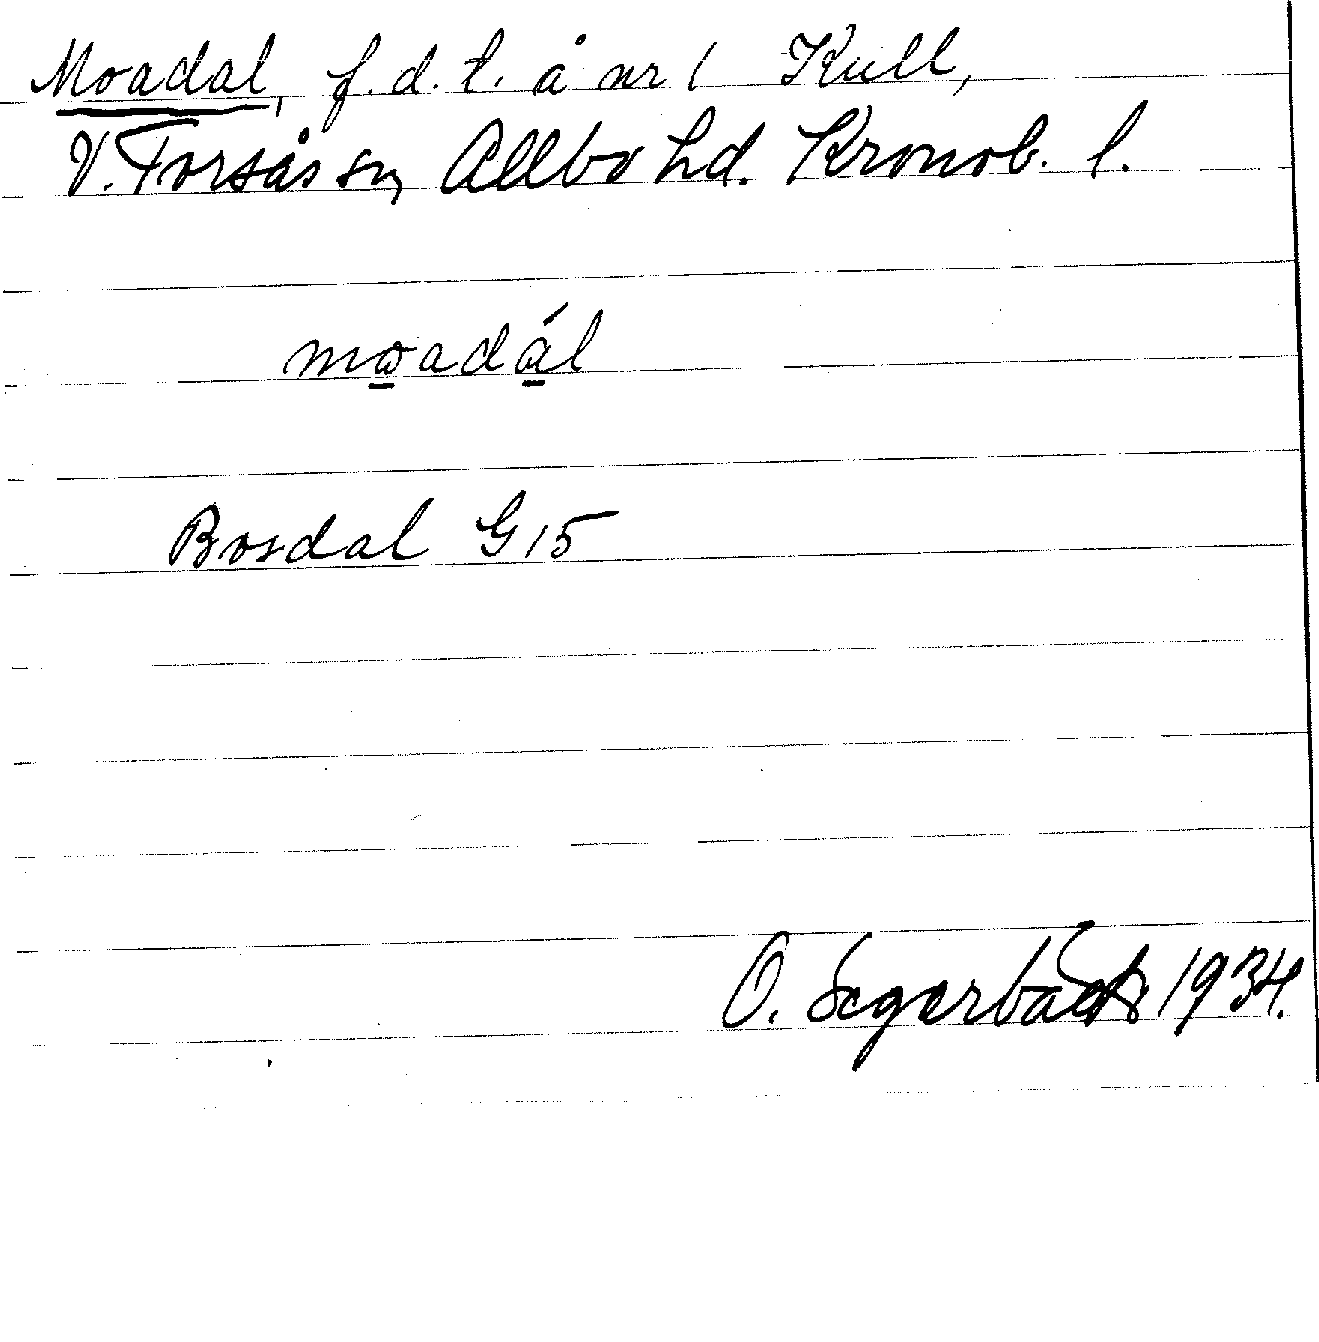 Moadal, f.d.t. å nr 1 Kull,
V. Torsås sn, Allbo hd. Kronob. l.
mo̲adá̲l
Bosdal G15
O. Segerbäck 1934.